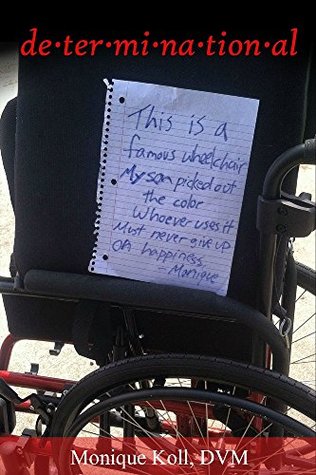 de·ter·mi·na·tion·al
This is a
famous wheelchair
My son picked out
the color
Whoever uses it
Must never give up
on happiness,
- Monique
Monique Koll, DVM